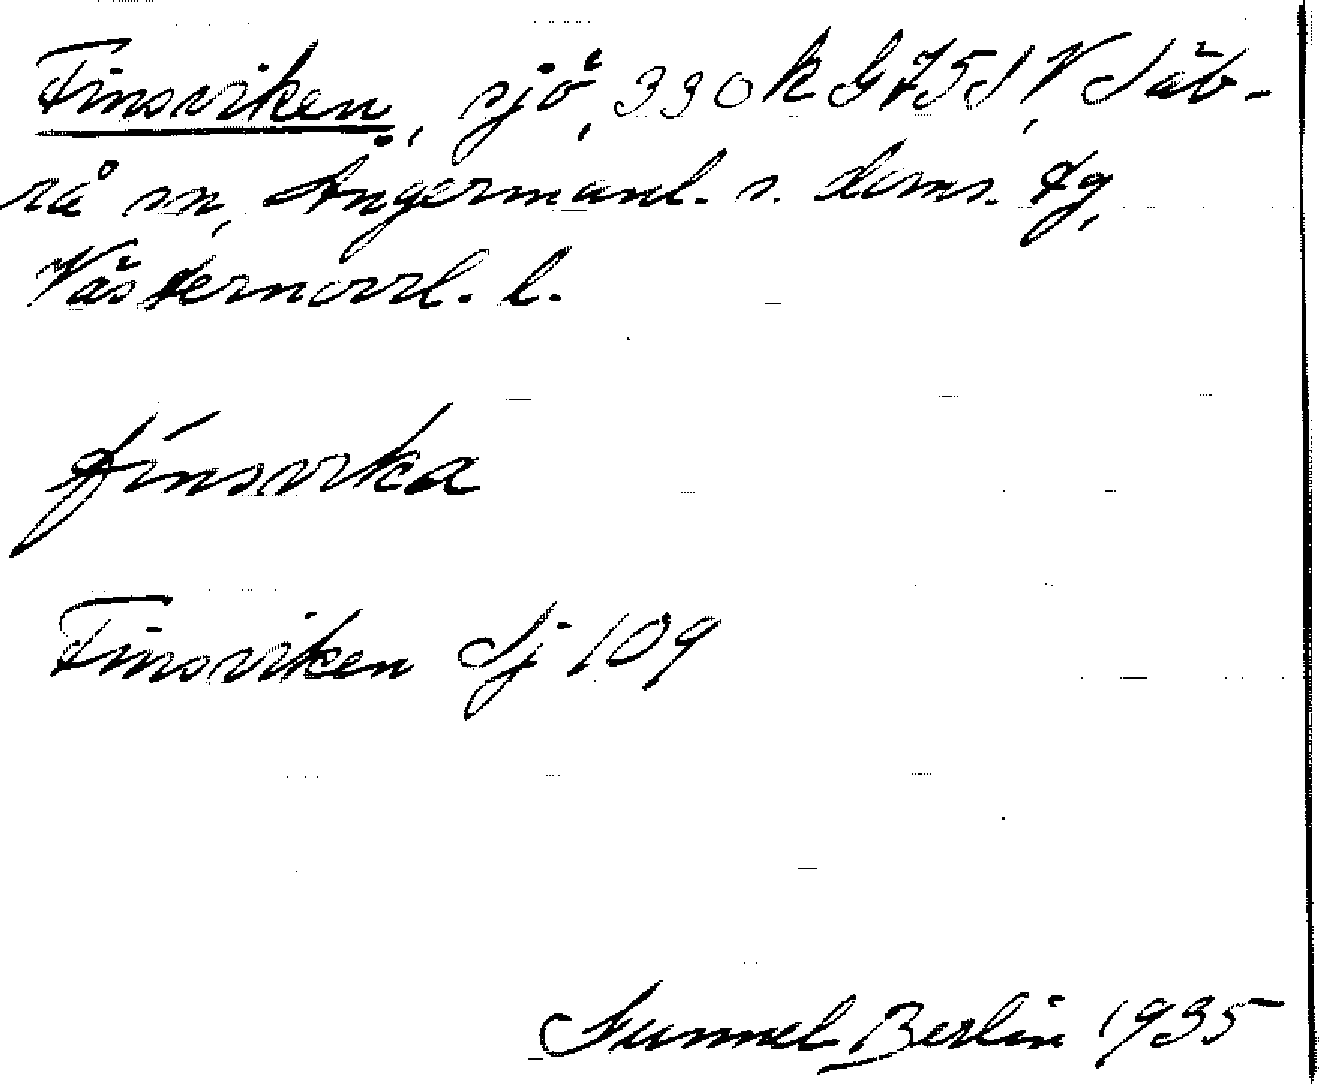 Finsviken, sjö, 330 k G 75 S V, Säb-
rå sn, Ångermanl. s. doms. tg,
Västernorrl. l.
fínsvika
Finsviken Sj 109
Gunnel Berlin 1935